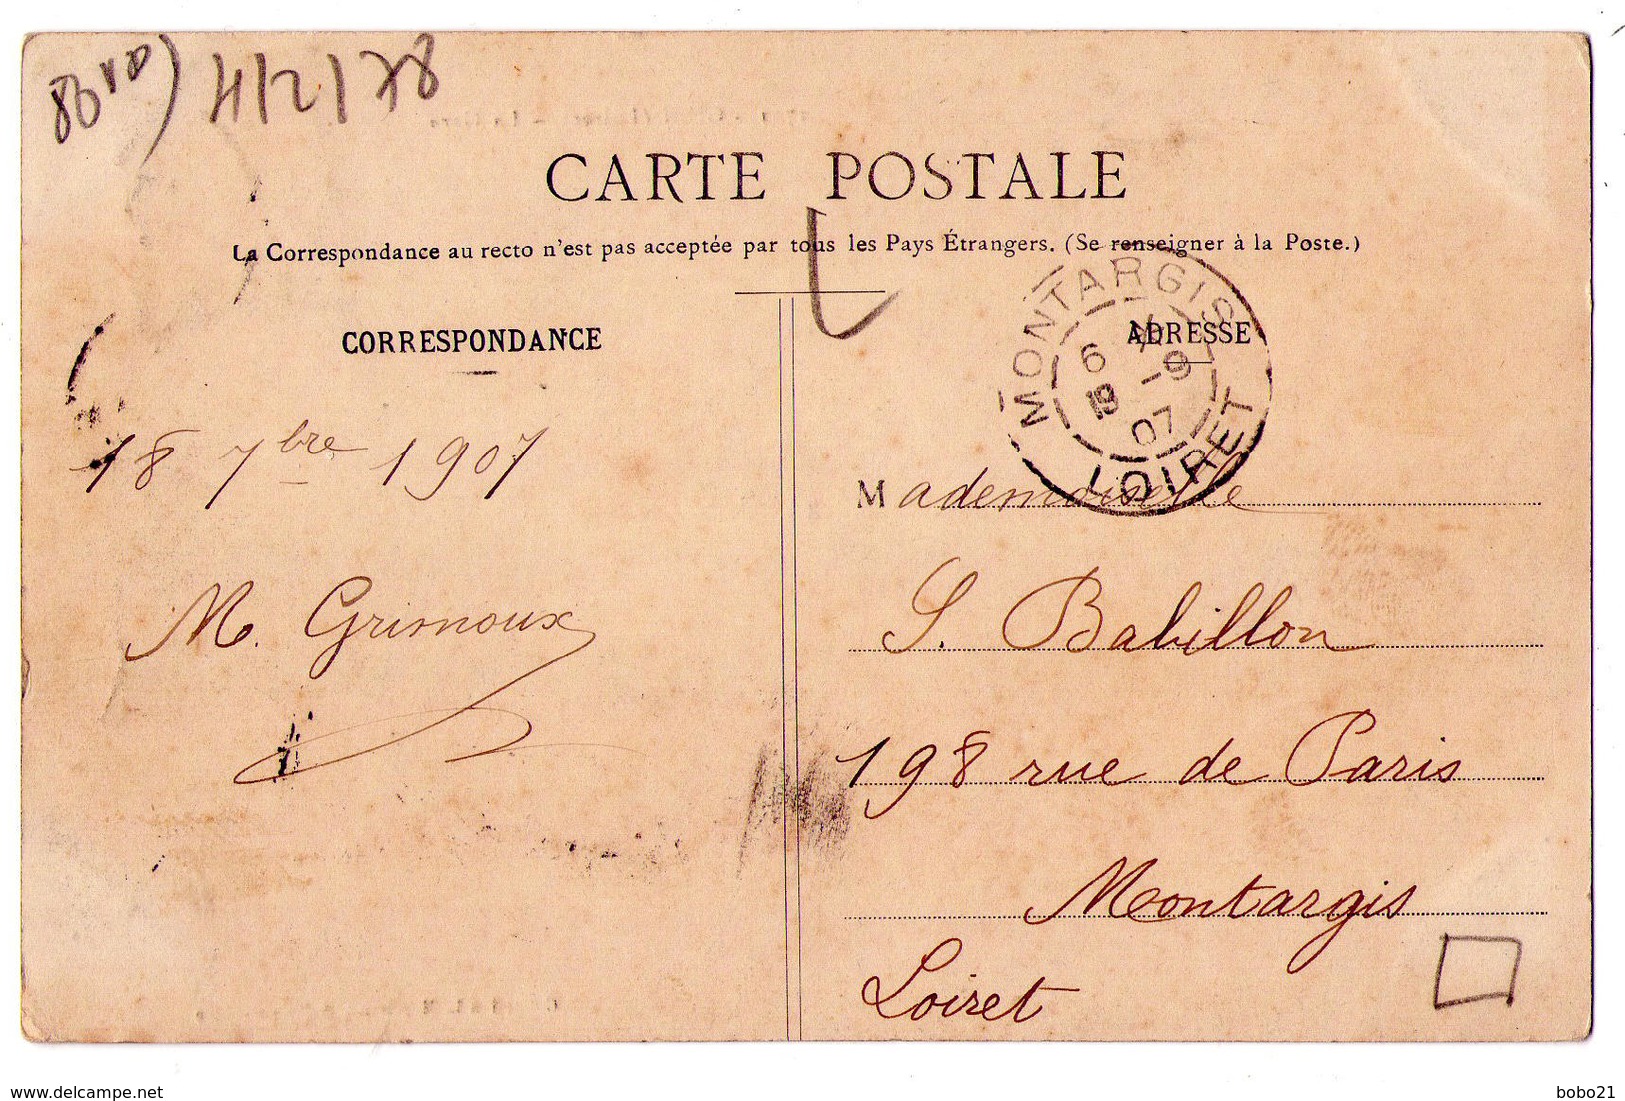 4/2/78
CARTE POSTALE
La Correspondance au recto n'est pas acceptée par tous les Pays Étrangers. (Se renseigner à la Poste.)
CORRESPONDANCE
ADRESSE
MONTARGIS
6
19 -9
07
LOIRET
18 7bre 1907
M. Grimoux
Mademoiselle
S. Babillon
198 rue de Paris
Montargis
Loiret
www.delcampe.net
bobo21